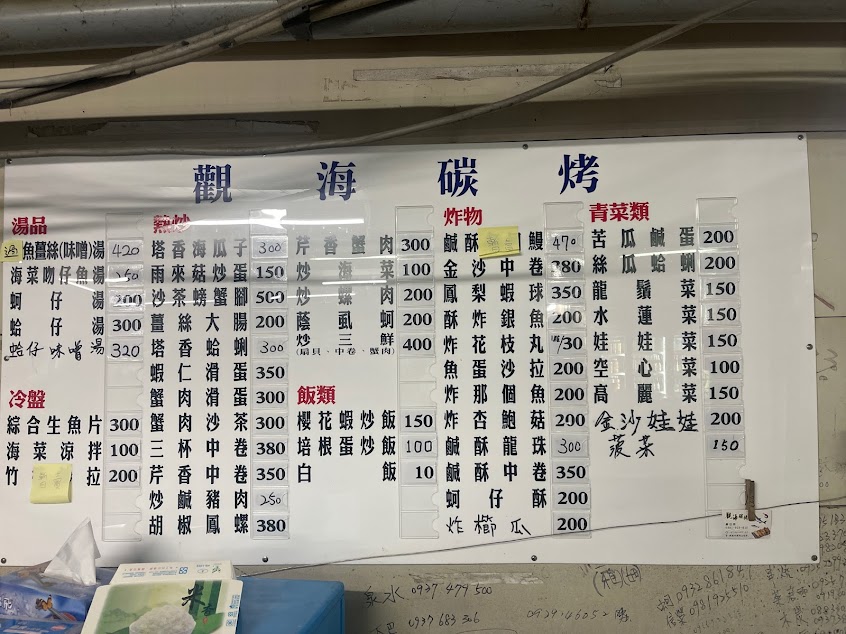 觀海碳烤
湯品
魚薑絲(味噌)湯 420
海菜吻仔魚湯 250
蚵仔湯 200
蛤仔湯 300
蛤仔味噌湯 320
冷盤
綜合生魚片 300
海菜涼拌 100
竹 拉 200
熱炒
塔香海瓜子 300
雨來菇炒蛋 150
沙茶螃蟹腳 500
薑絲大腸 200
塔香蛤蜊 300
蝦仁滑蛋 350
蟹肉滑蛋 300
蟹肉沙茶 300
三杯中卷 380
芹香中卷 350
炒鹹豬肉 250
胡椒鳳螺 380
芹香蟹肉 300
炒海菜 100
炒螺肉 200
蔭虱蚵 200
炒三鮮 400
(扇貝、中卷、蟹肉)
飯類
櫻花蝦炒飯 150
培根蛋炒飯 100
白飯 10
炸物
鹹酥 鰻 470
金沙中卷 380
鳳梨蝦球 350
酥炸銀魚 200
炸花枝丸 /30
魚蛋沙拉 200
炸那個魚 200
炸杏鮑菇 200
鹹酥龍珠 300
鹹酥中卷 350
蚵仔酥 200
炸櫛瓜 200
青菜類
苦瓜鹹蛋 200
絲瓜蛤蜊 200
龍鬚菜 150
水蓮菜 150
娃娃菜 150
空心菜 100
高麗菜 150
金沙娃娃 200
菠菜 150
米
泉水 0937 479 500
0937 683 306
0932861841
0981925510